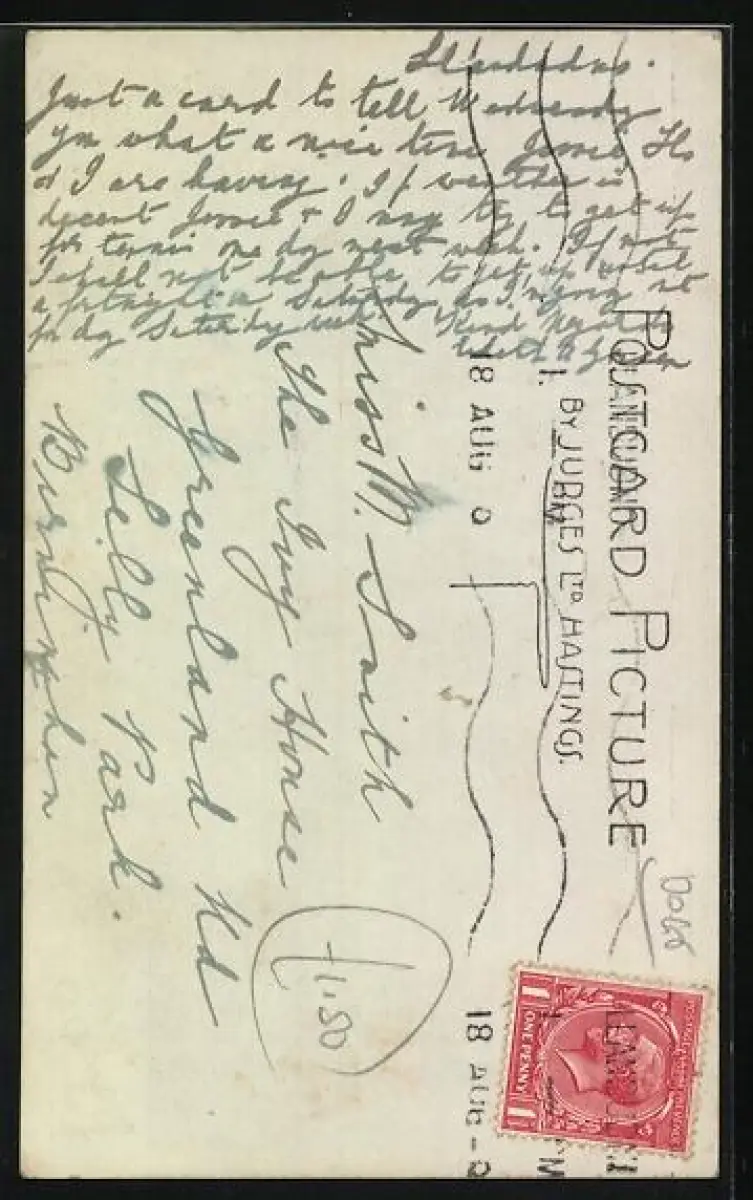 Llandudno.
Wednesday
Just a card to tell
you what a nice time Jessie, Flo
& I are having. If weather is
decent Jessie & I may try to get up
for tennis one dy next week. If not
I shall not be able to get up until
a fortnight on Saturday, as I'm going
for dy Saturday week. Kind Regards
Miss M. Smith
The Ivy House
Greenland Rd
Selly Park.
Birmingham
POSTCARD PICTURE
BY JUDGES LTD HASTINGS.
18 AUG
18 AUG
£1.50
ONE PENNY
1
1